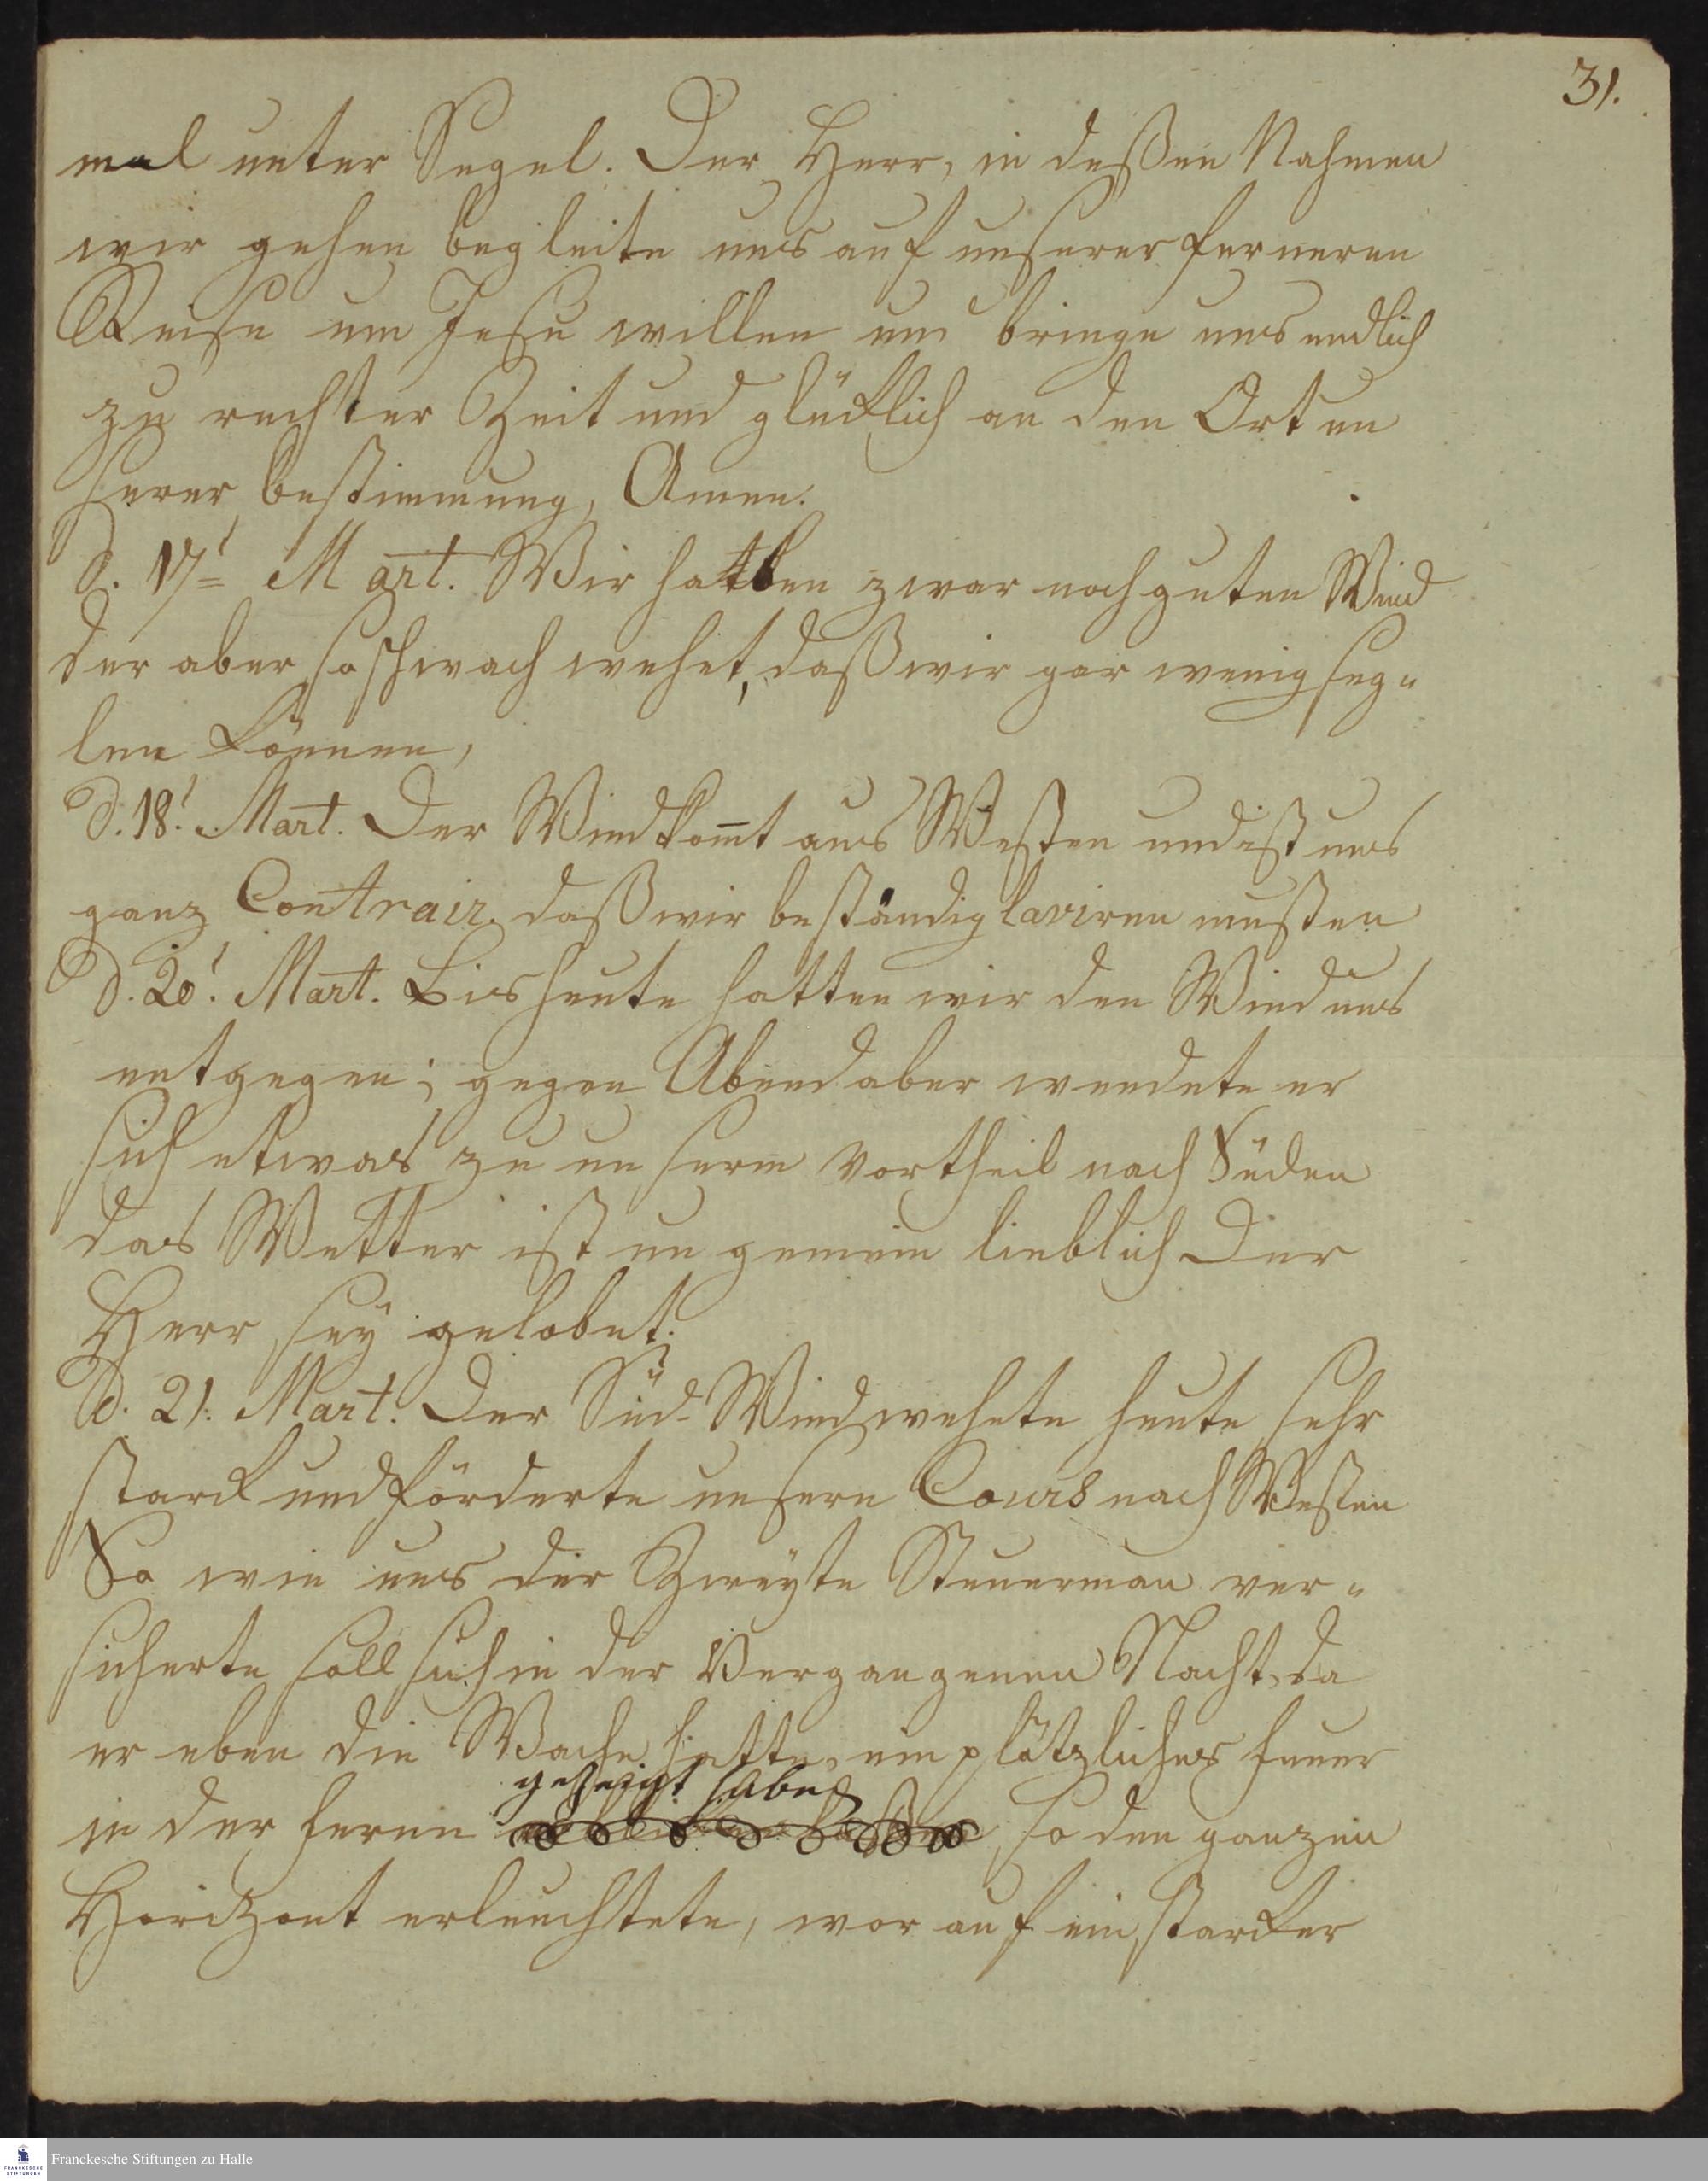 31.
mal unter Segel. Der Herr, in deßen Nahmen
wir gehen begleite uns auf unserer ferneren
Reise um Jesu willen und bringe uns endlich
zu rechter Zeit und glücklich an den Ort un
serer bestimmung, Amen.
d. 17t Mart. Wir hatten zwar noch guten Wind
der aber so schwach wehet, daß wir gar wenig seg-
len können,
d. 18t. Mart. Der Wind kom̄t aus Westen und ist uns
ganz Contrair. daß wir beständig laviren musten
d. 20t. Mart. Bis heute hatten wir den Wind uns
entgegen; gegen Abend aber wendete er
sich etwas zu unserm Vortheil nach Süden
das Wetter ist ungemein lieblich Der
Herr seÿ gelobet.
d. 21. Mart. Der Süd-Wind wehete heute sehr
starck und förderte unsern Cours nach Westen
So wie uns der Zweÿte Steuerman ver-
sicherte soll sich in der Vergangenen Nacht, da
er eben die Wache hatte, ein plötzliches feuer
gezeigt haben
in der ferne so den ganzen
Horizont erleuchtete, wor auf ein starker
Franckesche Stiftungen zu Halle